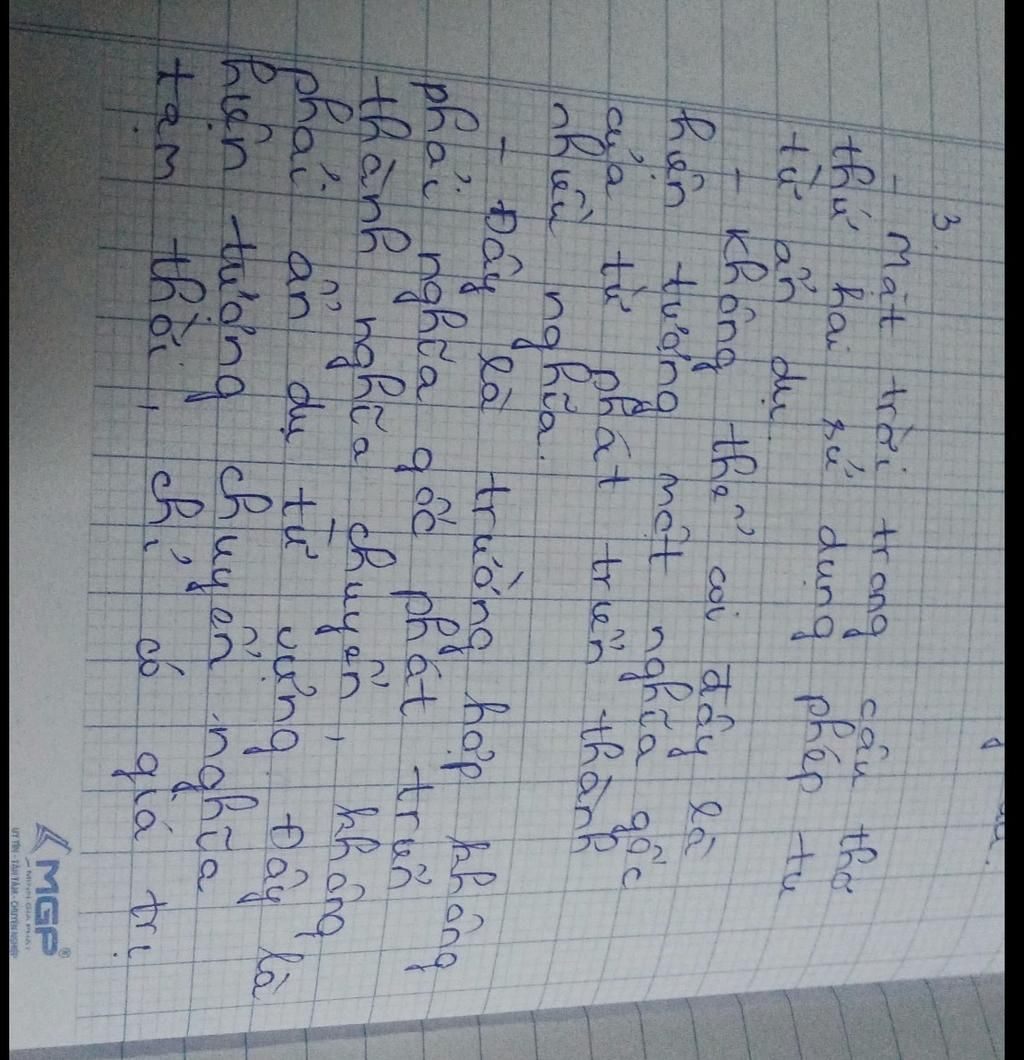 3.
- Mặt trời trong câu thơ
thứ hai sử dụng phép tu
từ ẩn dụ.
- Không thể coi đây là
hiện tượng một nghĩa gốc
của từ phát triển thành
nhiều nghĩa.
- Đây là trường hợp không
phải nghĩa gốc phát triển
thành nghĩa chuyển, không
phải ẩn dụ từ vựng. Đây là
hiện tượng chuyển nghĩa
tạm thời, chỉ có giá trị
MGP®